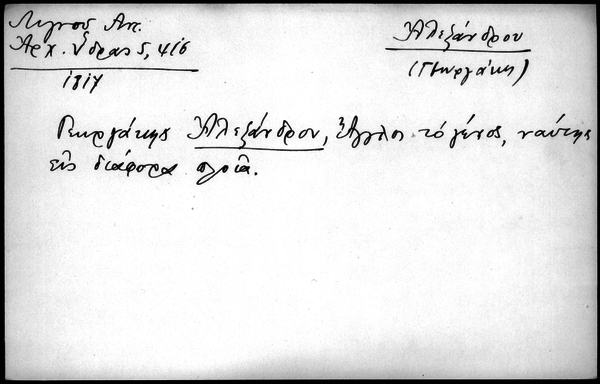 Λιγνοῦ Ἀντ.
Ἀρχ. Ὕδρας 5, 416
1817
Ἀλεξάνδρου
(Γεωργάκης)
Γεωργάκης Ἀλεξάνδρου, Ἄγγλος τὸ γένος, ναύτης
εἰς διάφορα πλοῖα.